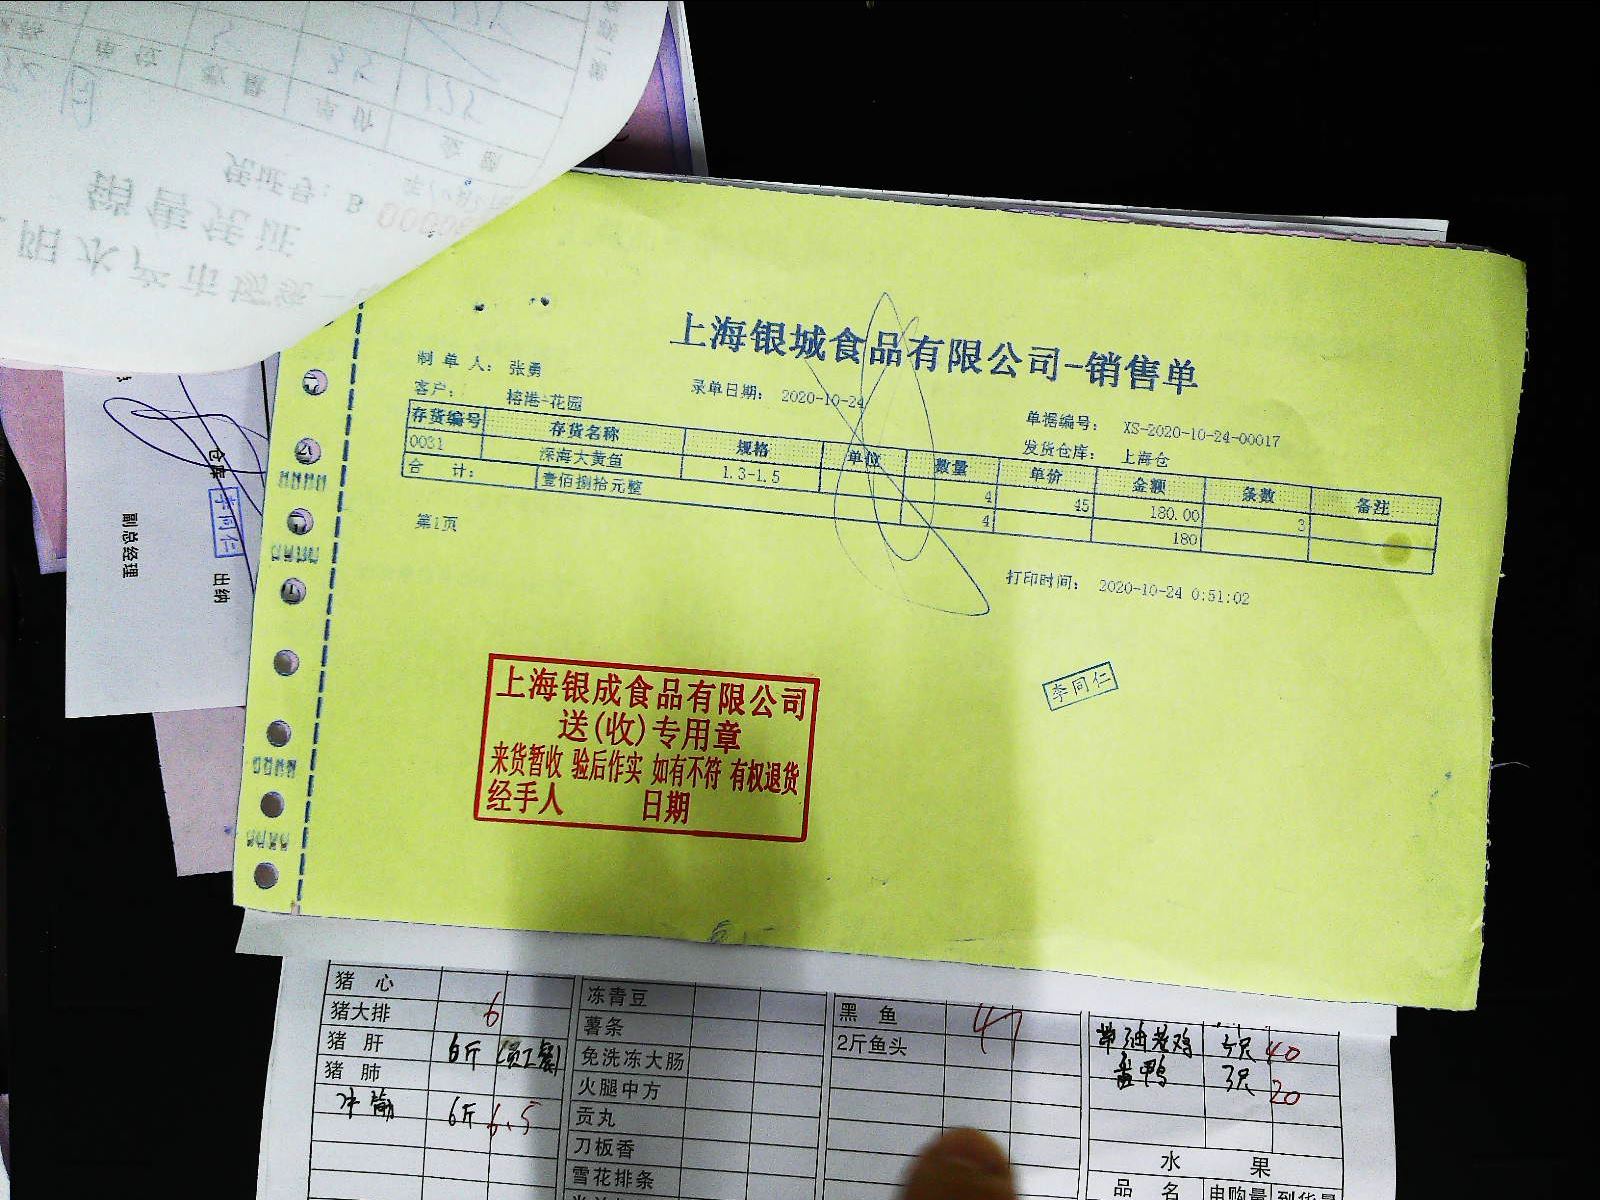 上海银城食品有限公司-销售单
制 单 人： 张勇
客户： 榕港-花园
录单日期： 2020-10-24
单据编号： XS-2020-10-24-00017
发货仓库： 上海仓
存货编号 存货名称 规格 单位 数量 单价 金额 条数 备注
0031 深海大黄鱼 1.3-1.5 4 45 180.00 3
合 计： 壹佰捌拾元整 4 180
第1页
打印时间： 2020-10-24 0:51:02
李同仁
上海银成食品有限公司
送(收)专用章
来货暂收 验后作实 如有不符 有权退货
经手人 日期
仓库 李同仁 出纳
副总经理
销售凭证
凭证号：B
单价
数量
金额
猪 心
猪大排 6
猪 肝
猪 肺
6斤 6.5
冻青豆
薯条
免洗冻大肠
火腿中方
贡丸
刀板香
雪花排条
黑 鱼
2斤鱼头
40
3只 20
水 果
品 名 申购量 到货量